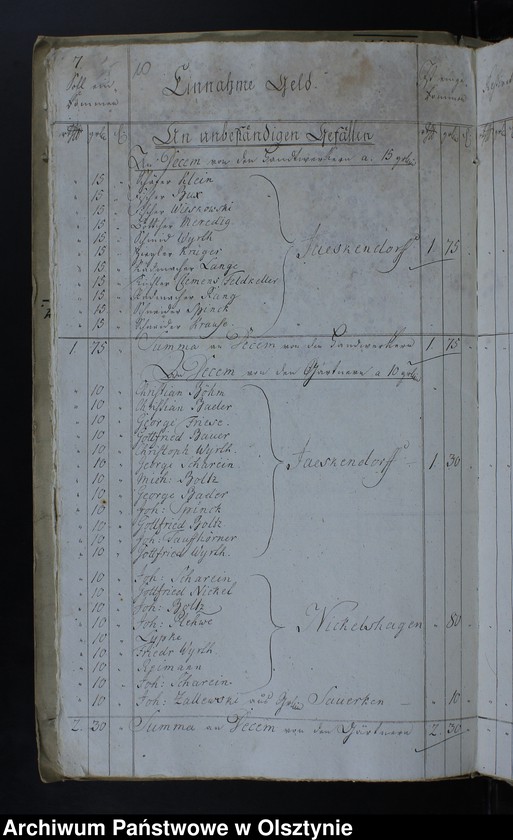 7.
10
Soll einkommen
Einnahme Geld.
Ist eingekommen
An unbeständigen Gefällen
An Decem von den Handtwerkern a. 15 gr.
15 Schäfer Klein
15 Bux
15 Wisskowski
15 Böttcher Meredig
15 Schmid Wyrth
15 Krüger
15 Radmacher Lange
15 Tischler Clemens Feldkeller
15 Radmacher Rang
15 Schneider Spinck
15 Schneider Krause
Jaeskendorff 1 75
1. 75 Summa an Decem von den Handwerkern 1 75
An Decem von den Gärtnern a 10 gr.
10 Christian Böhm
10 Christian Bader
10 George Friese.
10 Gottfried Bauer
10 Christoph Wyrth
10 George Scharein
10 Mich: Boltz
10 George Bader
10 Joh: Spinck
10 Gottfried Boltz
10 Joh: Saufhörner
10 Gottfried Wyrth.
Jaeskendorff 1. 30
10 Joh: Scharein
10 Gottfried Nickel
10 Joh: Boltz
10 Joh: Rehwe
10 Lipke
10 Friedr Wyrth
10 Reimann
10 Joh: Scharein.
Nickelshagen 80
10 Joh: Zallewski aus Gr. Sauerken 10
2. 30 Summa an Decem von den Gärtnern 2. 30
Archiwum Państwowe w Olsztynie